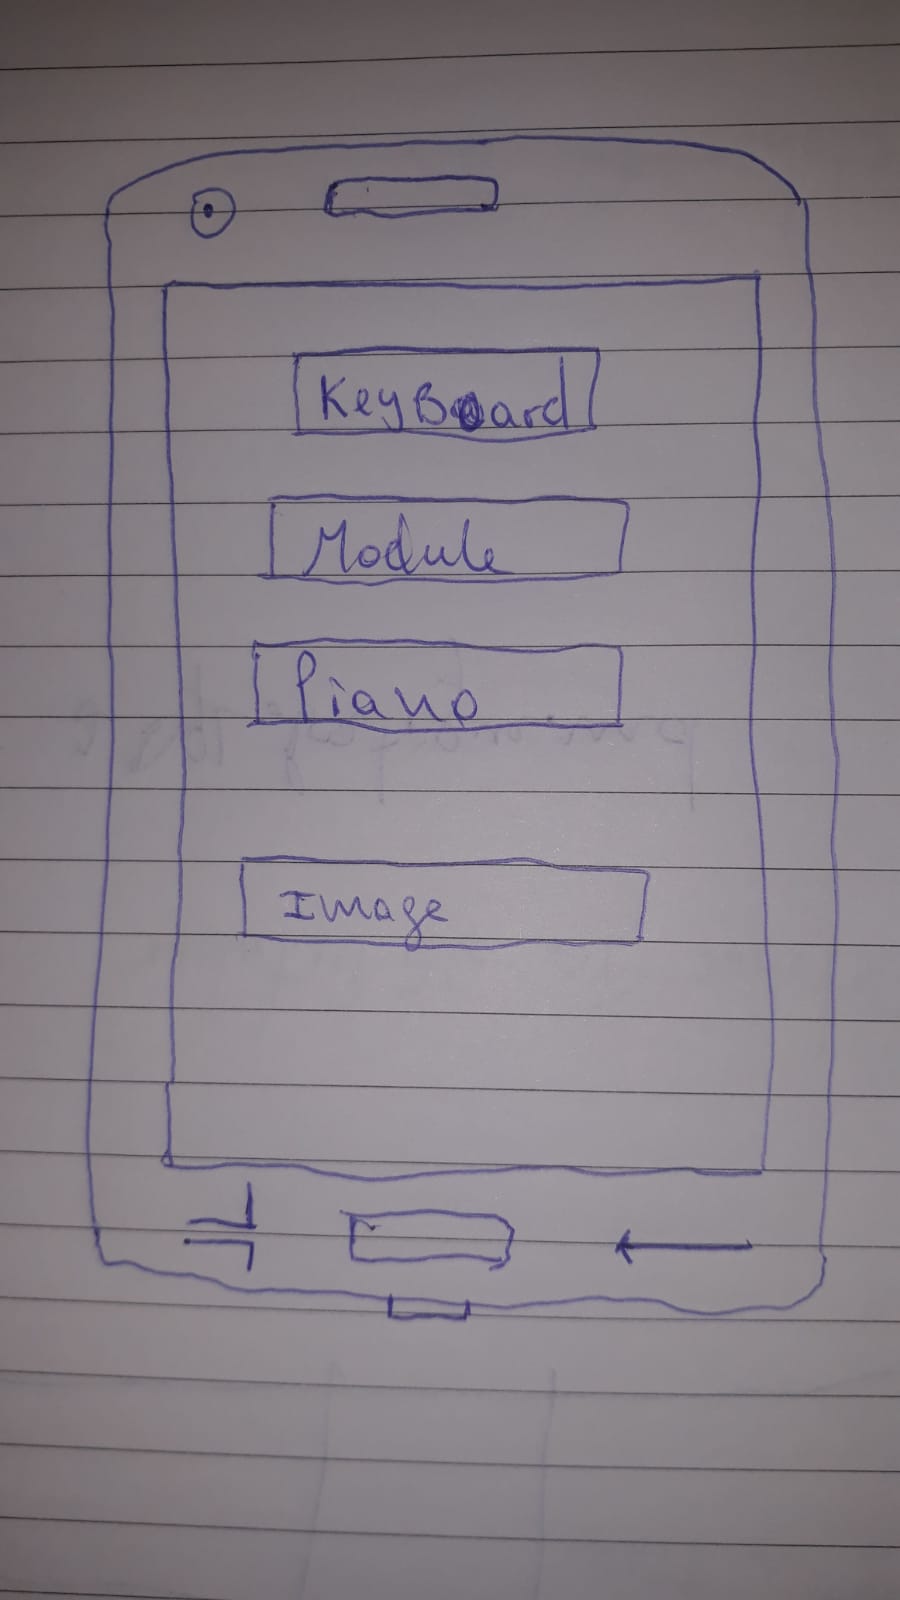 KeyBoard
Module
Piano
Image